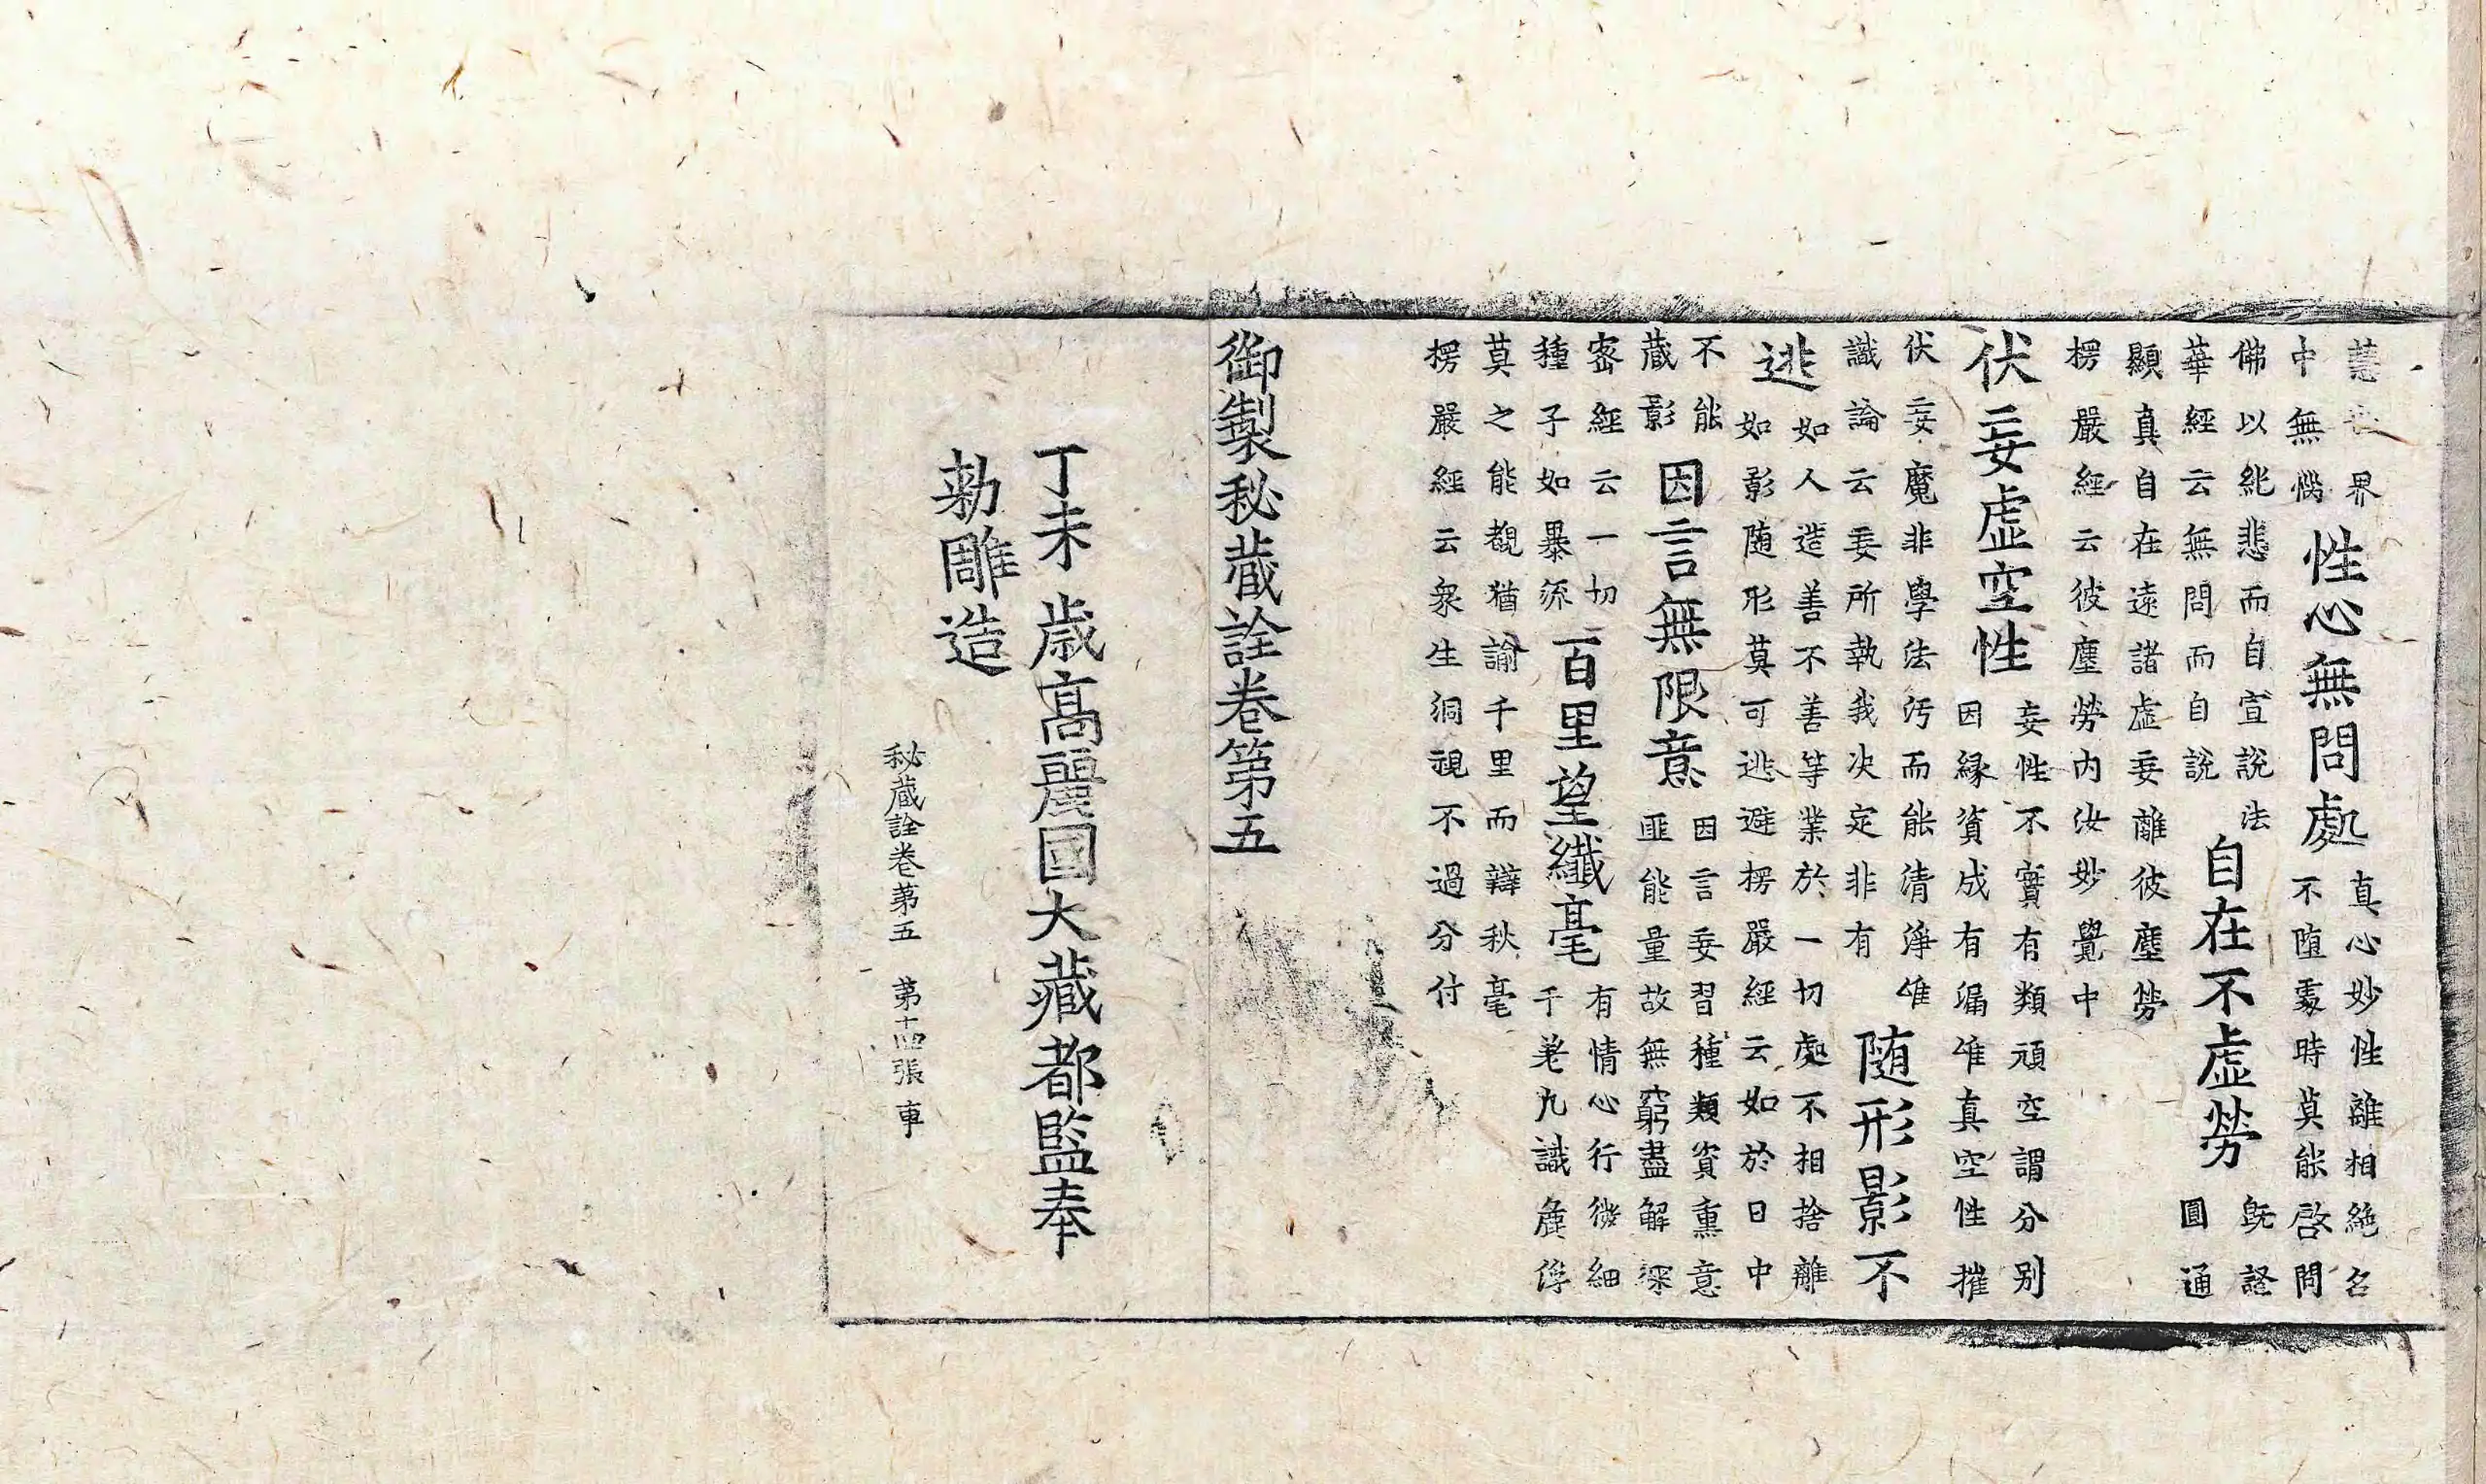 界
中無惱
性心無問處
真心妙性離相絶名
不堕處時莫能啓問
佛以紕悲而自宣說法
華經云無問而自說
自在不虛勞
既證
圓通
顯真自在遠諸虛妄離彼塵勞
楞嚴經云彼塵勞內汝妙覺中
伏妄虛空性
妄性不實有類頑空謂分別
因縁資成有漏唯真空性摧
伏妄魔非學法汚而能清淨唯
識論云妄所執我决定非有
随形影不
逃
如人造善不善等業於一切處不相捨離
如影随形莫可逃避楞嚴經云如於日中
不能
藏影
因言無限意
因言妄習種類資熏意
匪能量故無窮盡解深
密經云一切
種子如暴流
百里望纖毫
有情心行微細
千差九識麁浮
莫之能覩猶諭千里而辯秋毫
楞嚴經云衆生洞視不過分付
御製秘藏詮卷第五
丁未歲高麗國大藏都監奉
勅雕造
秘藏詮卷第五 第十四張 車